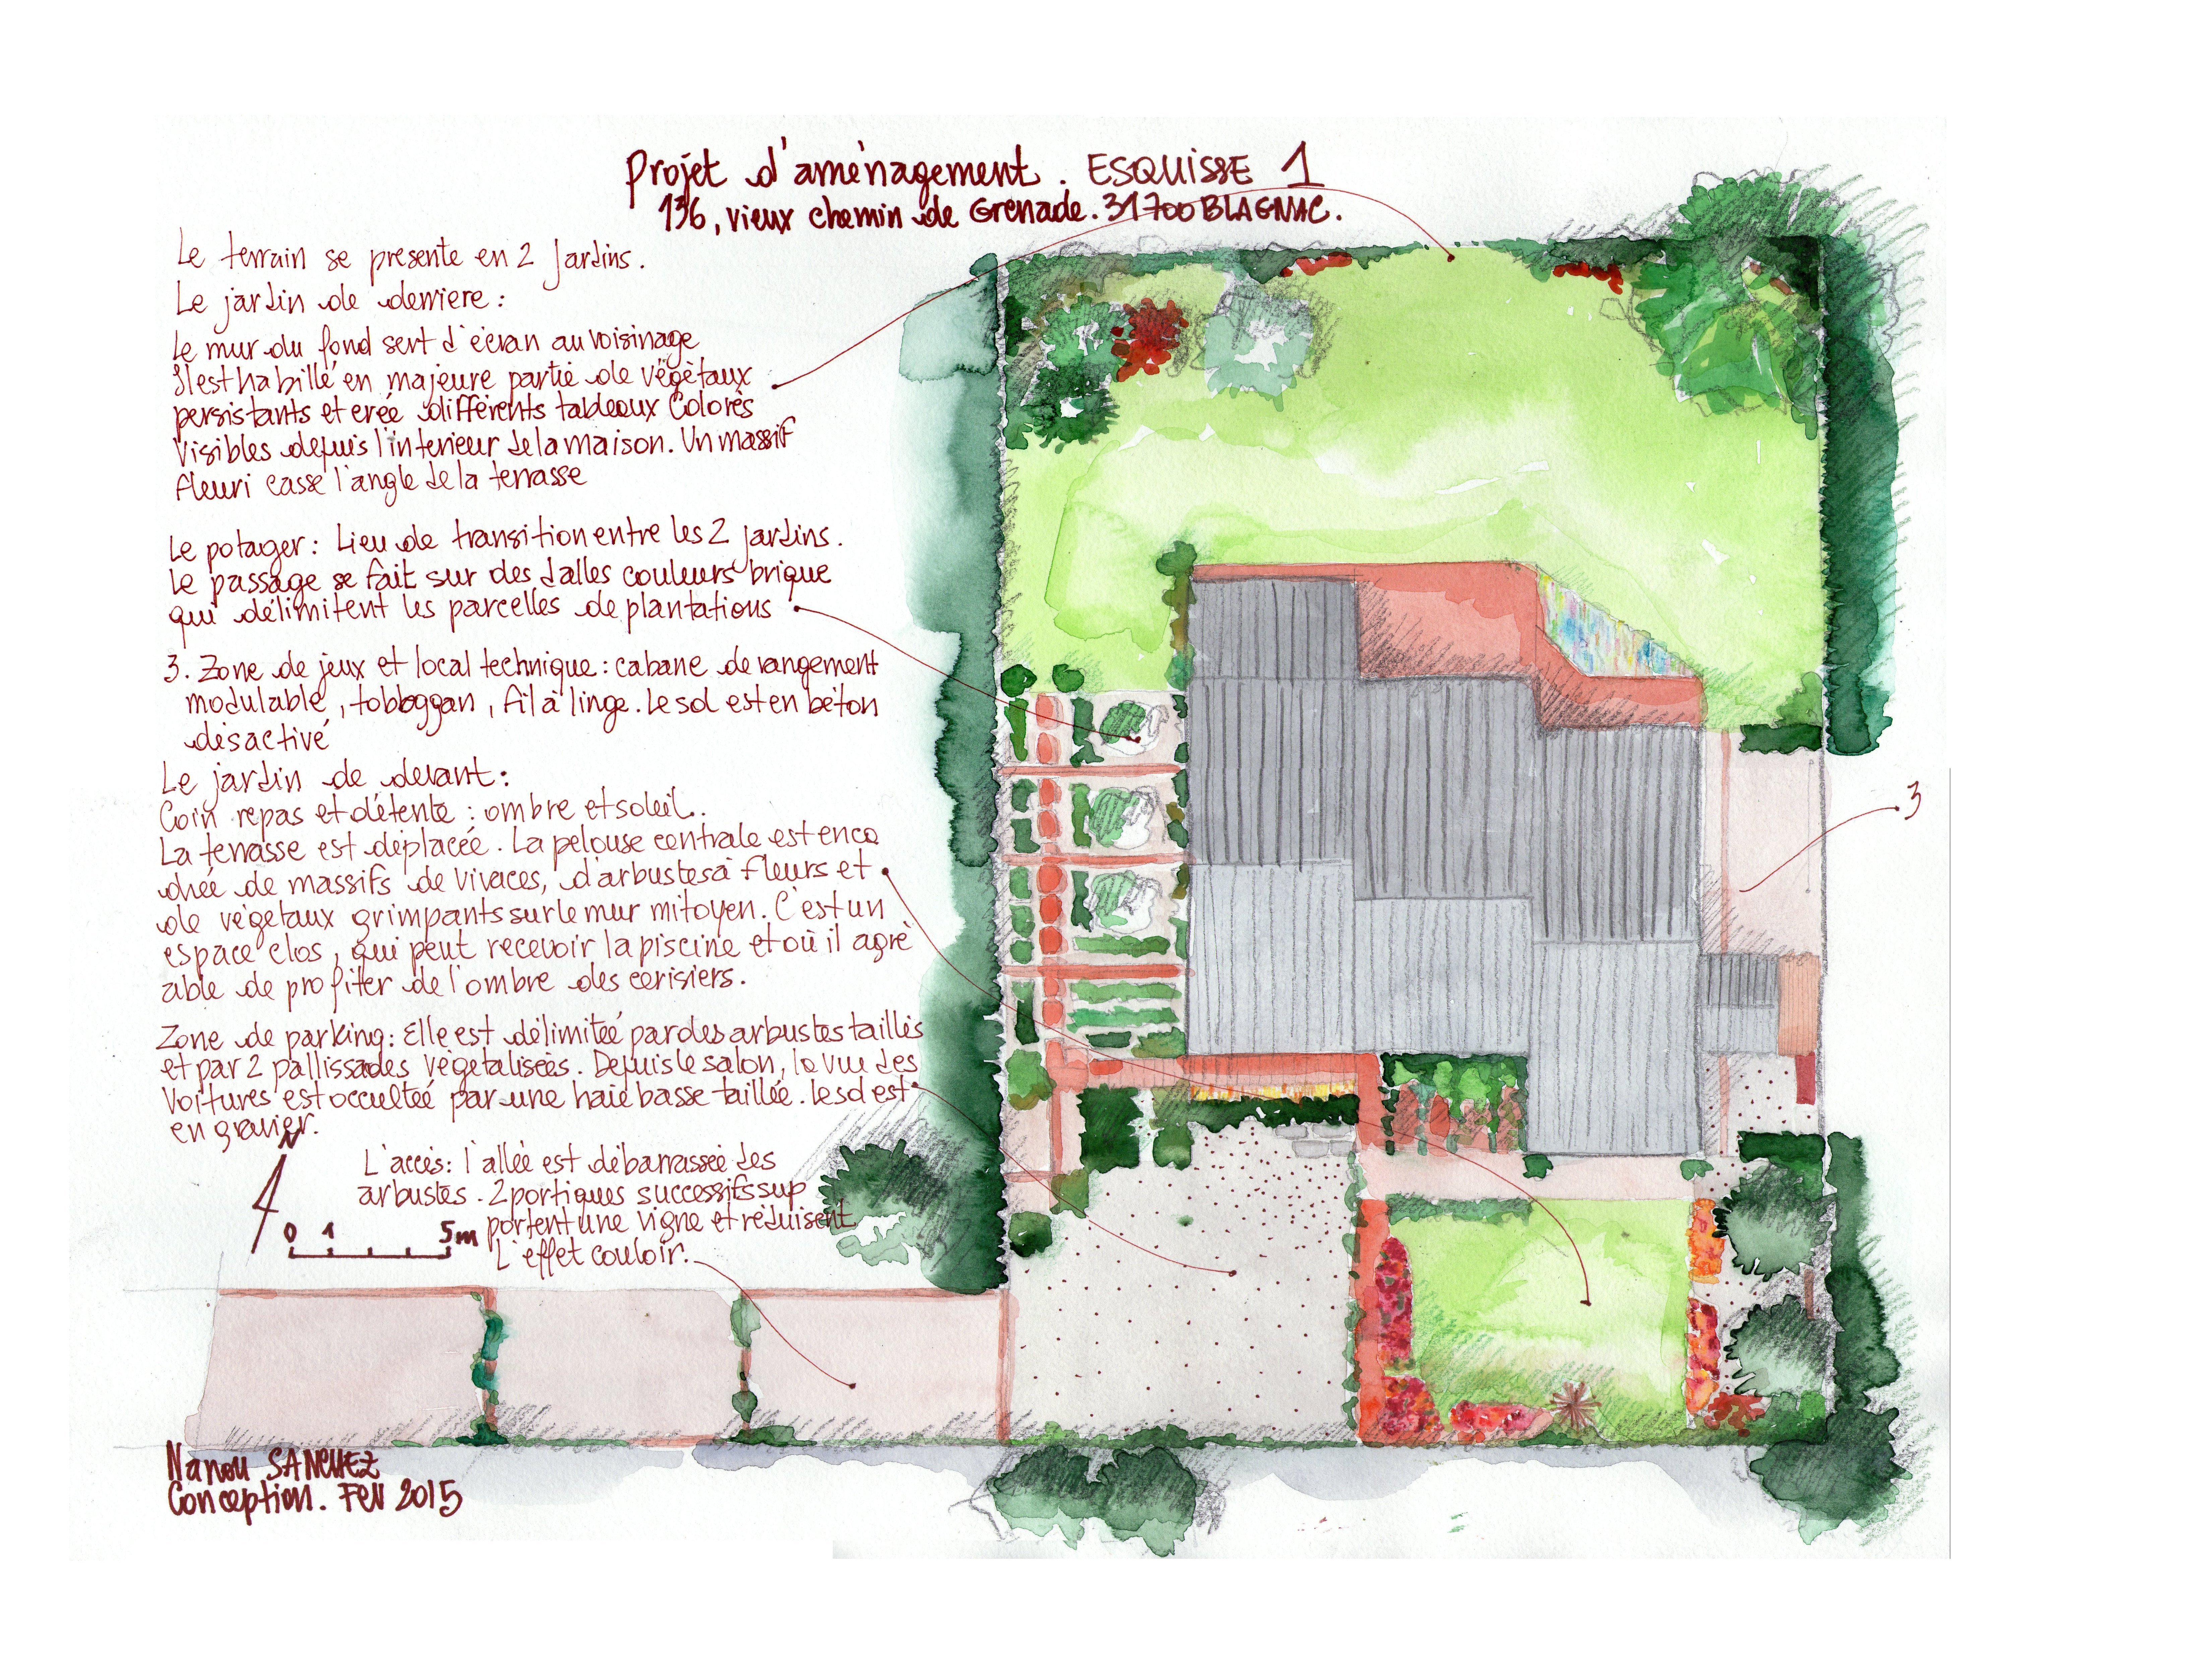 Projet d'aménagement. ESQUISSE 1
136, vieux chemin de Grenade. 31700 BLAGNAC.
Le terrain se présente en 2 Jardins.
Le jardin de derriere :
Le mur du fond sert d'écran au voisinage
Il est habillé en majeure partie de végétaux
persistants et crée différents tableaux Colorés
Visibles depuis l'interieur de la maison. Un massif
fleuri casse l'angle de la terrasse
Le potager : Lieu de transition entre les 2 jardins.
Le passage se fait sur des dalles couleurs brique
qui délimitent les parcelles de plantations
3. Zone de jeux et local technique : cabane de rangement
modulable, tobboggan, fil à linge. Le sol est en béton
désactivé
Le jardin de devant :
Coin repas et détente : ombre et soleil.
La terrasse est déplacée. La pelouse centrale est enca
drée de massifs de vivaces, d'arbustes à fleurs et
de végétaux grimpants sur le mur mitoyen. C'est un
espace clos, qui peut recevoir la piscine et où il agré
able de profiter de l'ombre des cerisiers.
Zone de parking : Elle est délimitée par des arbustes taillés
et par 2 pallissades végétalisées. Depuis le salon, la vue des
voitures est occultée par une haie basse taillée. Le sol est
en gravier.
L'accés : l'allée est débarrassée des
arbustes. 2 portiques successifs sup
portent une vigne et réduisent
L'effet couloir.
N
0 1 5m
3
Nanou SANCHEZ
Conception. FEV 2015